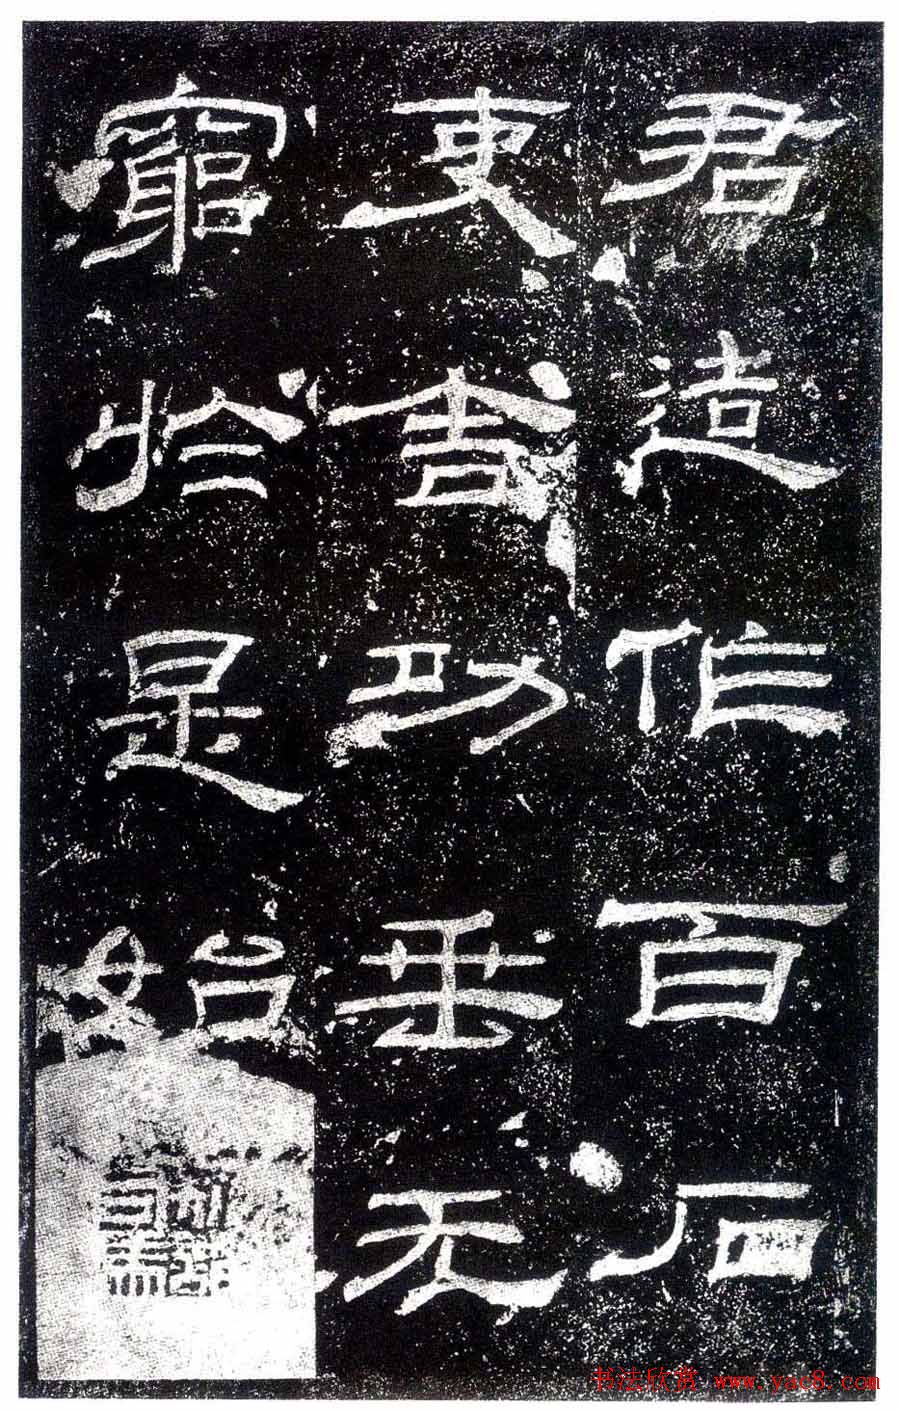 君造作百石
吏舍功垂无
窮於是始
书法欣赏 www.yac8.com